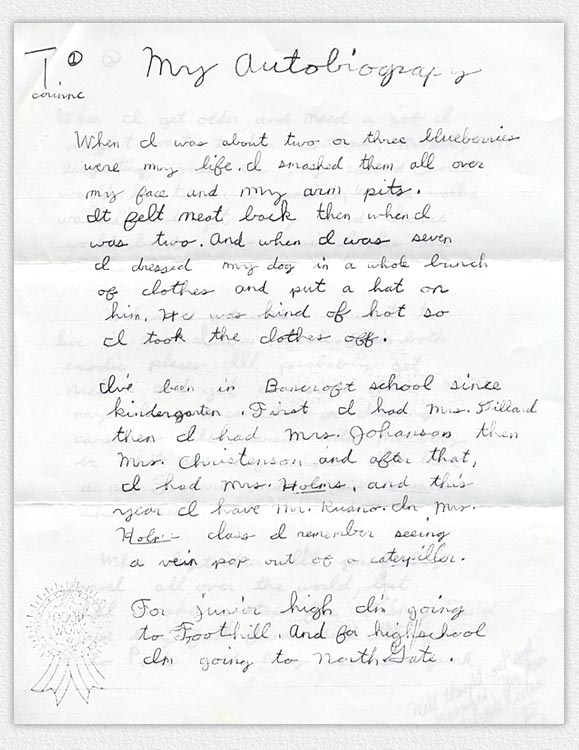 To ①
corinne
My Autobiograpy
When I was about two or three blueberries
were my life. I smashed them all over
my face and my arm pits.
It felt neat back then when I
was two. And when I was seven
I dressed my dog in a whole bunch
of clothes and put a hat on
him. He was kind of hot so
I took the clothes off.
I've been in Bancroft school since
kindergarten. First I had Mrs. Dillard
then I had Mrs. Johanson then
Mrs. Christenson and after that,
I had Mrs. Holms, and this
year I have Mr. Rusno. In Mrs.
class I remember seeing
a vein pop out of a caterpiller.
For junior high I'm going
to Foothill. And for high school
I'm going to NorthGate.
Well thought out and